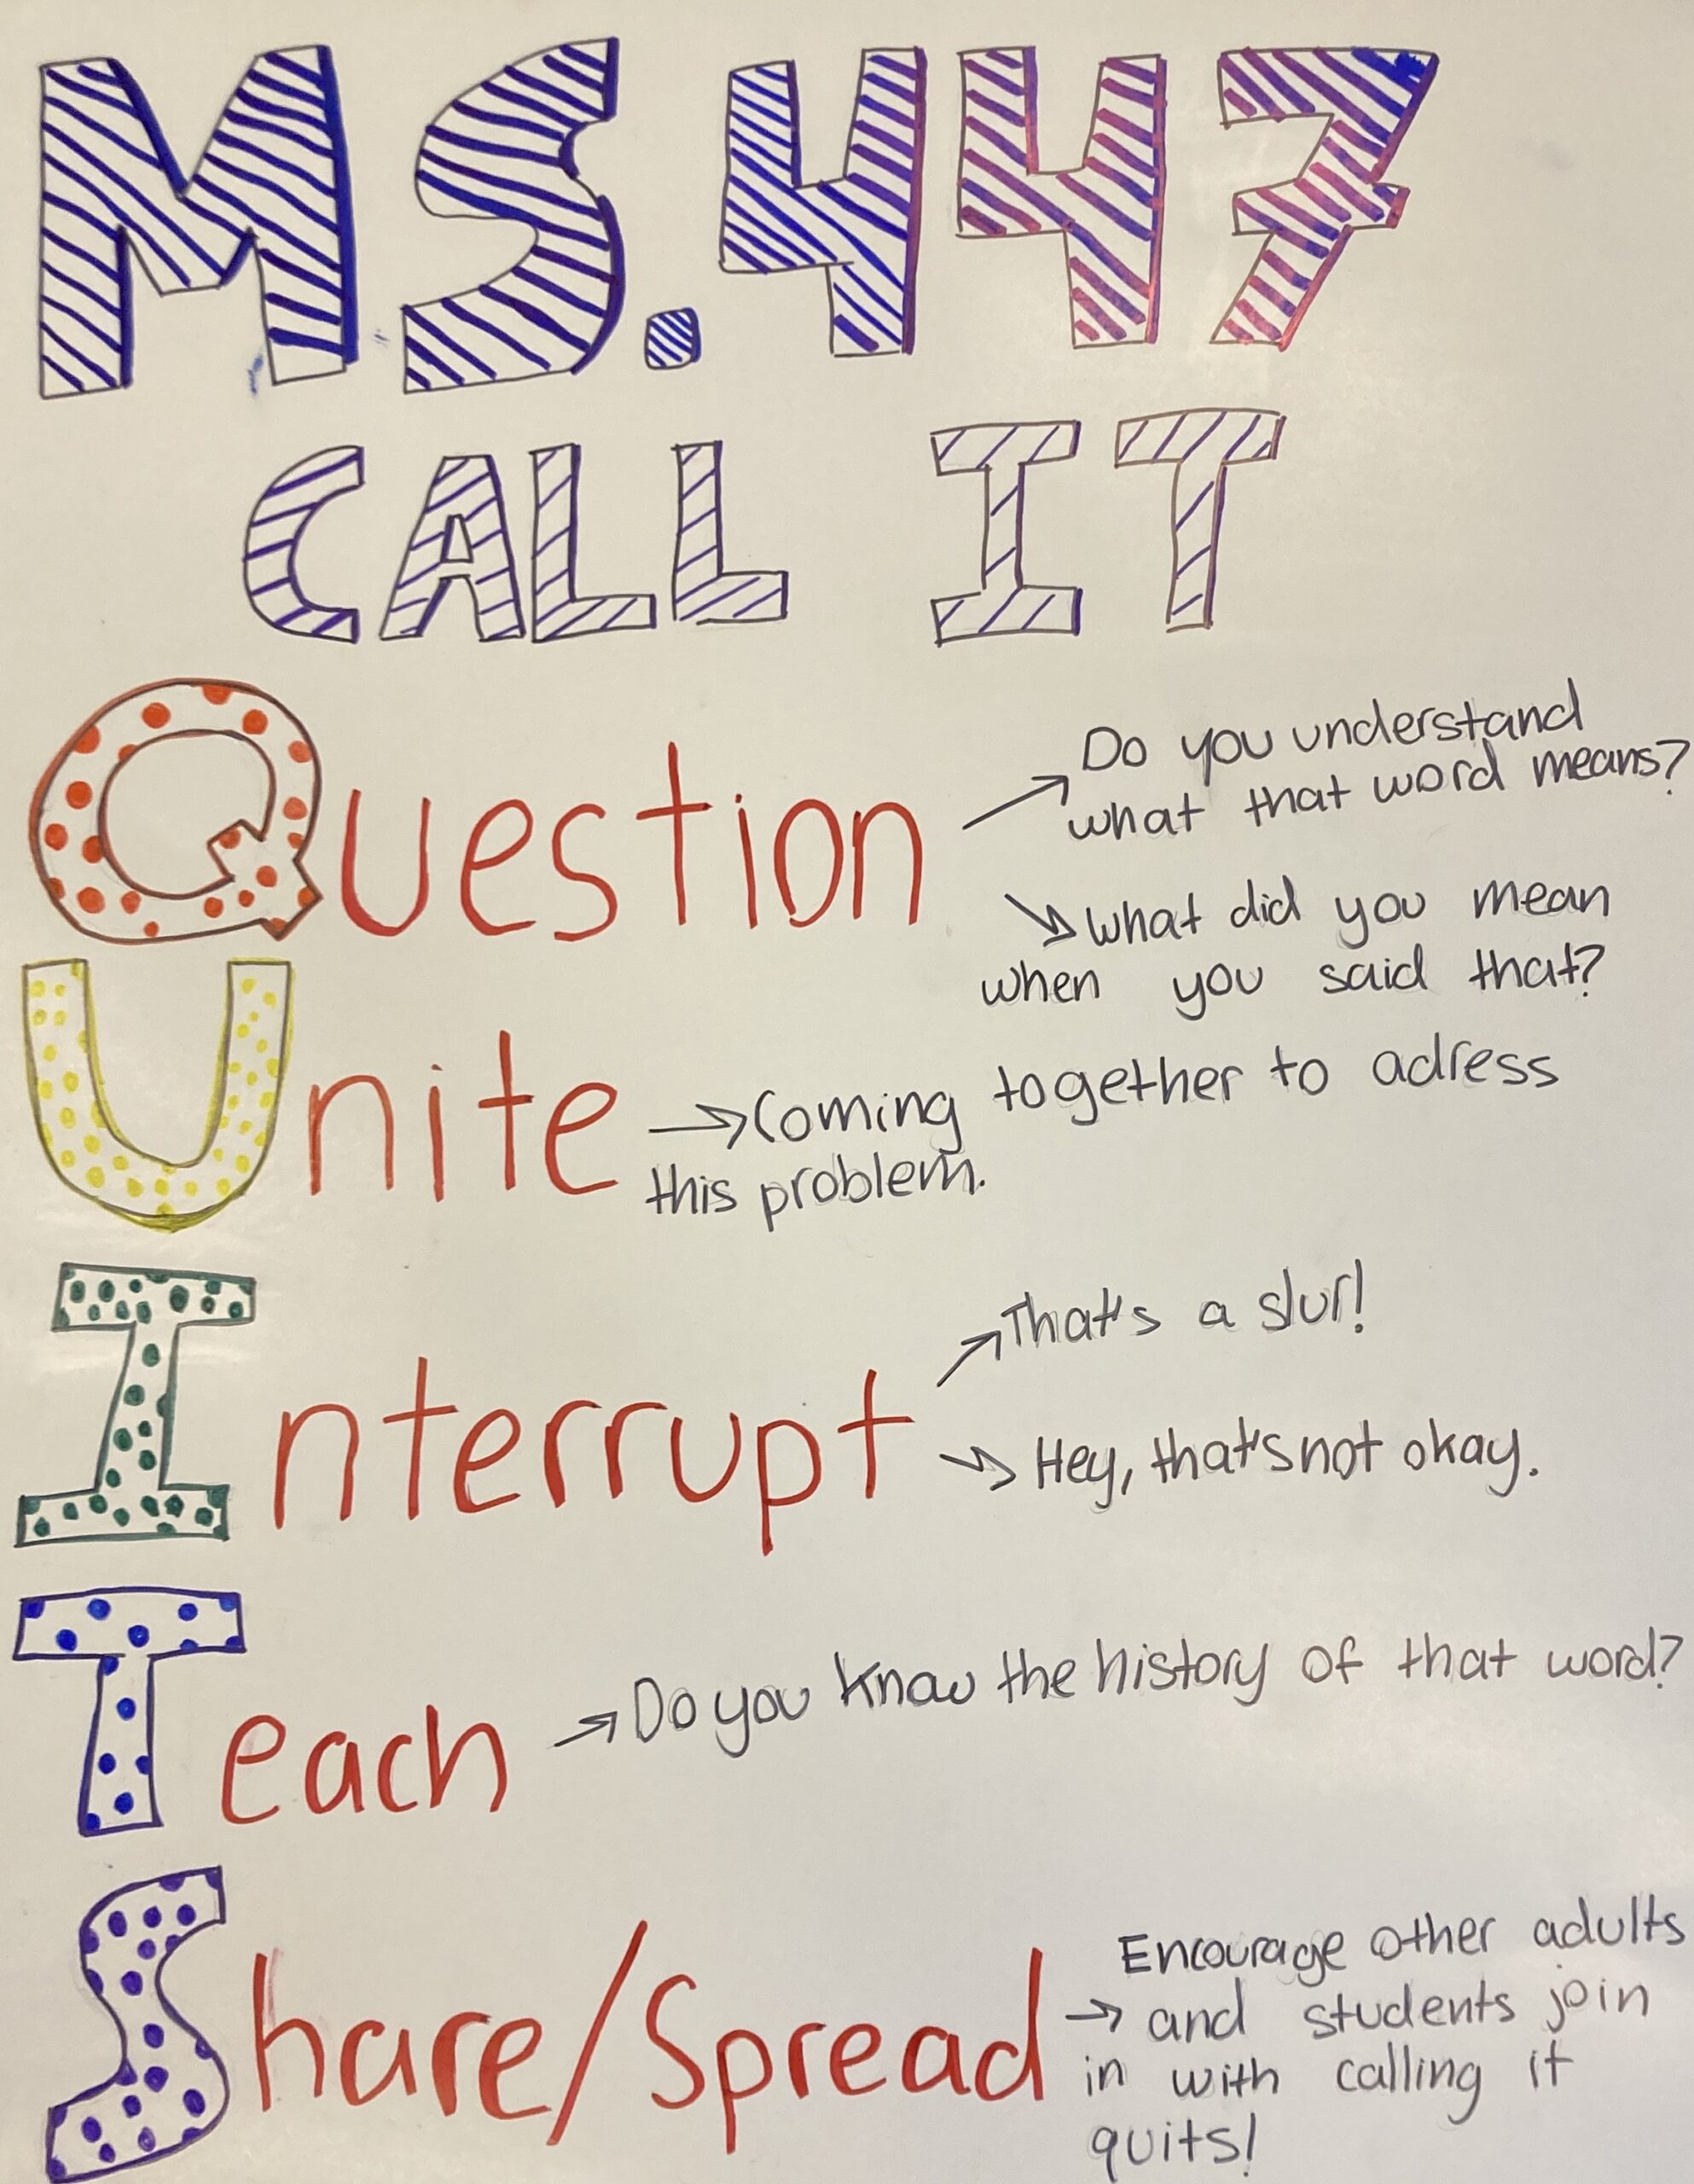 MS. 447
CALL IT
Question
Do you understand
what that word means?
what did you mean
when you said that?
Unite
Coming together to adress
this problem.
Interrupt
That's a slur!
Hey, that's not okay.
Teach
Do you know the history of that word?
Share/Spread
Encourage other adults
and students join
in with calling it
quits!